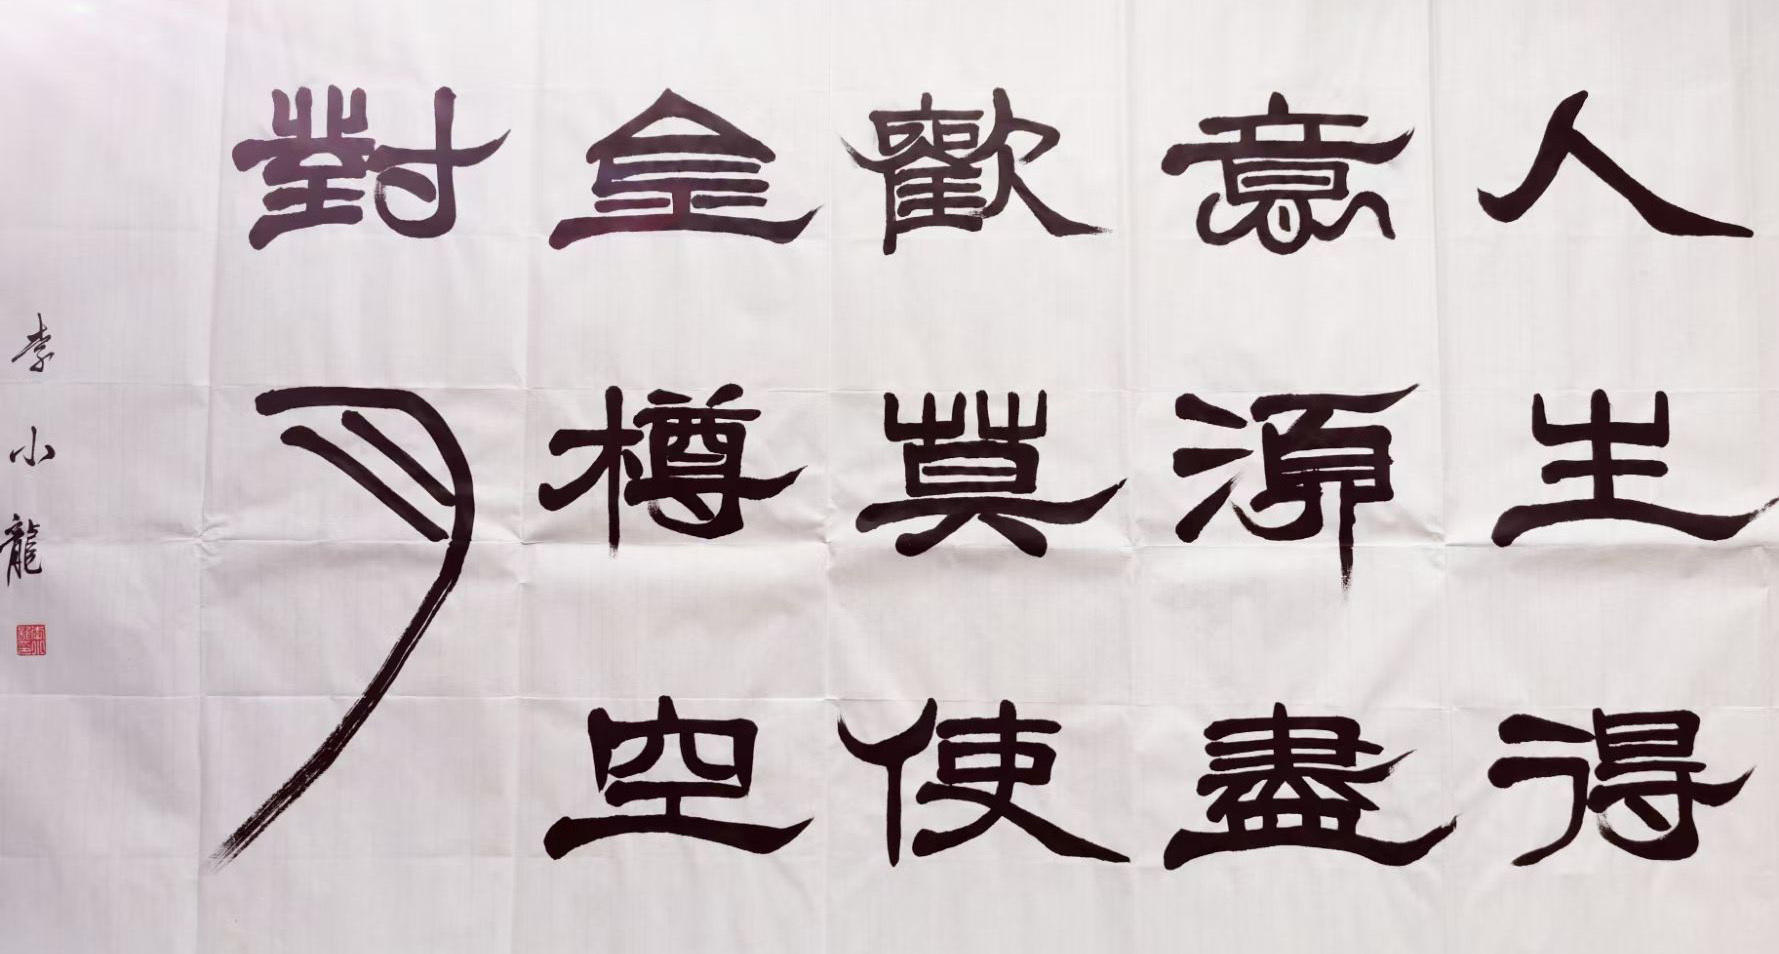 人生得
意須盡
歡莫使
金樽空
對月
李小龍